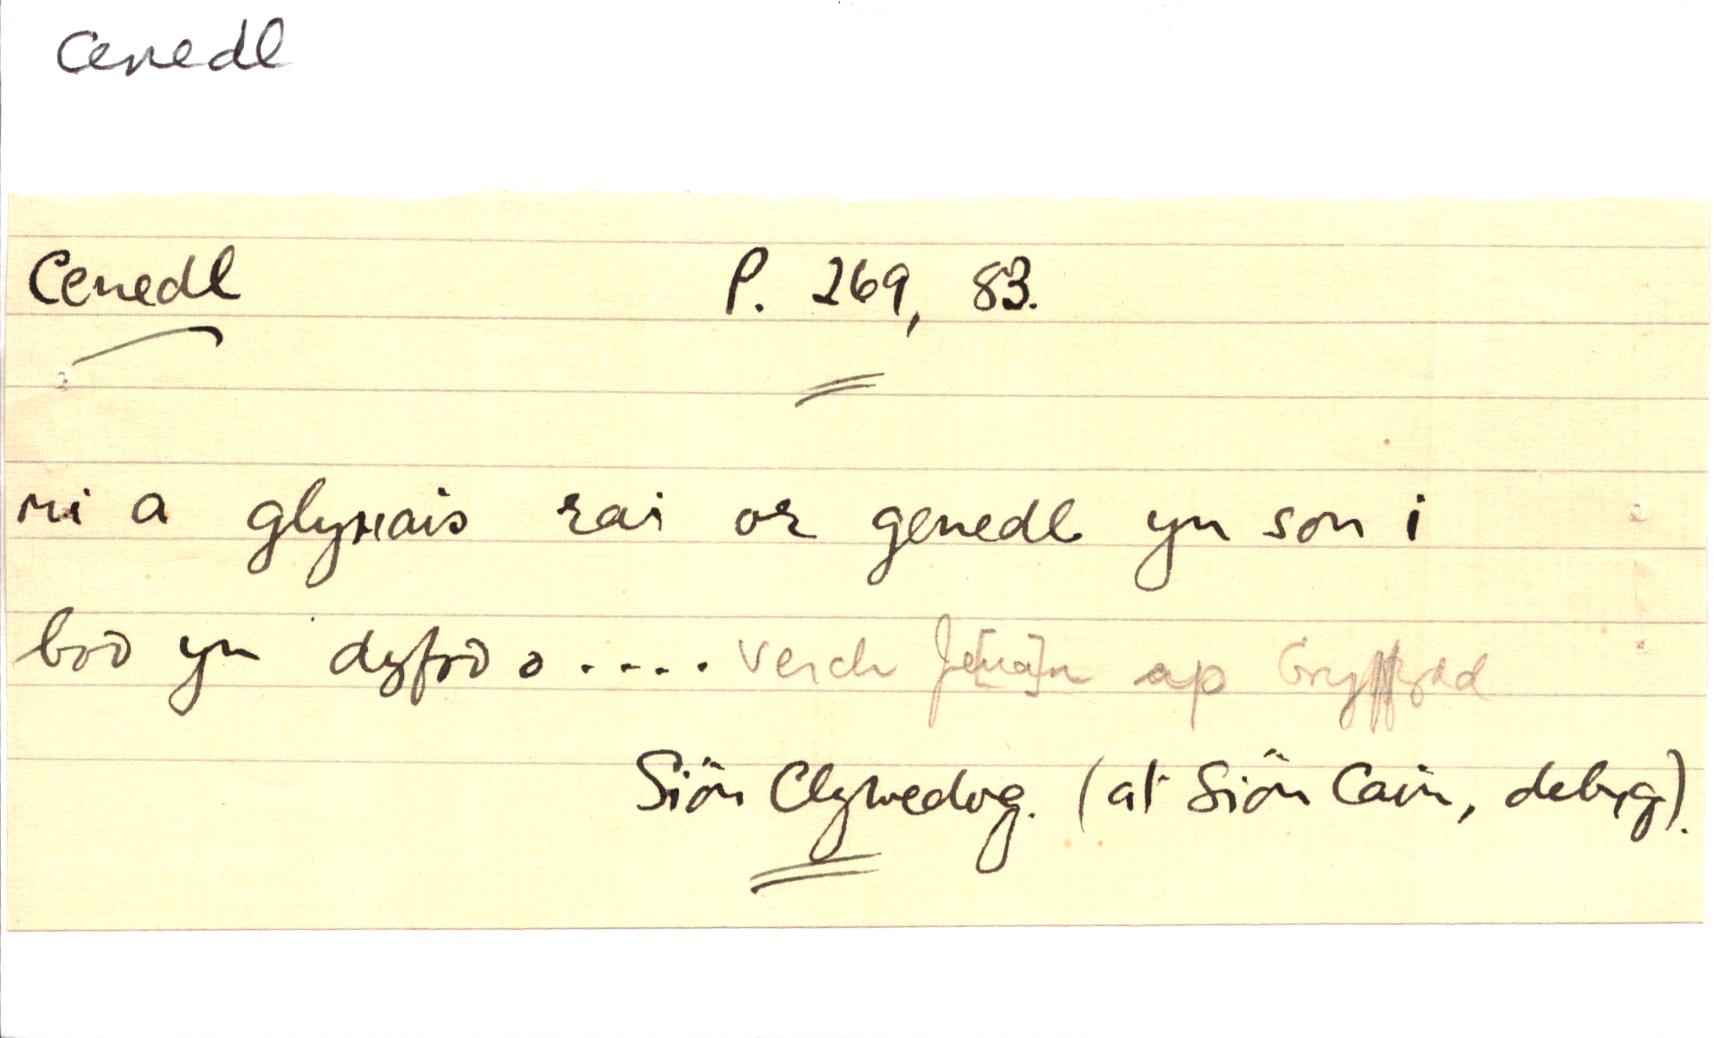 Cenedl
Cenedl P. 269, 83.
mi a glywais rai or genedl yn son i
bod yn dyfod o .... verch Je[ua]n ap Gryffydd
Siôn Clywedog. (at Siôn Cain, debyg).